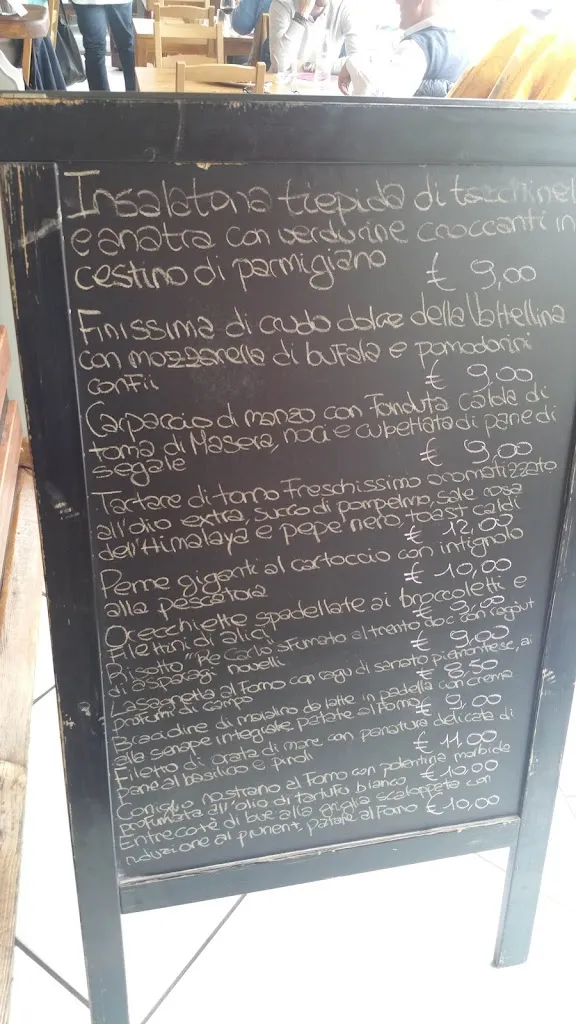 Insalatona tiepida di tacchinel
e anatra con verdurine croccanti in
cestino di parmigiano € 9,00
Finissima di crudo dolce della Valtellina
con mozzarella di bufala e pomodorini
confit € 9,00
Carpaccio di manzo con fonduta calda di
toma di Masera, noci e cubettata di pane di
segale € 9,00
Tartare di tonno freschissimo aromatizzato
all'olio extra, succo di pompelmo, sale rosa
dell'Himalaya e pepe nero, toast caldi
€ 12,00
Penne giganti al cartoccio con intingolo
alla pescatora € 10,00
Orecchiette spadellate ai broccoletti e
filettini di alici € 9,00
Risotto "Re Carlo" sfumato al trento doc con ragout
di asparagi novelli € 9,00
Lasagnetta al forno con ragù di sanato piemontese, ai
profumi di campo € 8,50
Bracioline di maialino da latte in padella con crema
alla senape integrale, patate al forno € 9,00
Filetto di orata di mare con panatura delicata di
pane al basilico e pinoli € 11,00
Coniglio nostrano al forno con polentina morbida
profumata all'olio di tartufo bianco € 10,00
Entrecotè di bue alla griglia scaloppata con
riduzione al prunent, patate al forno € 10,00